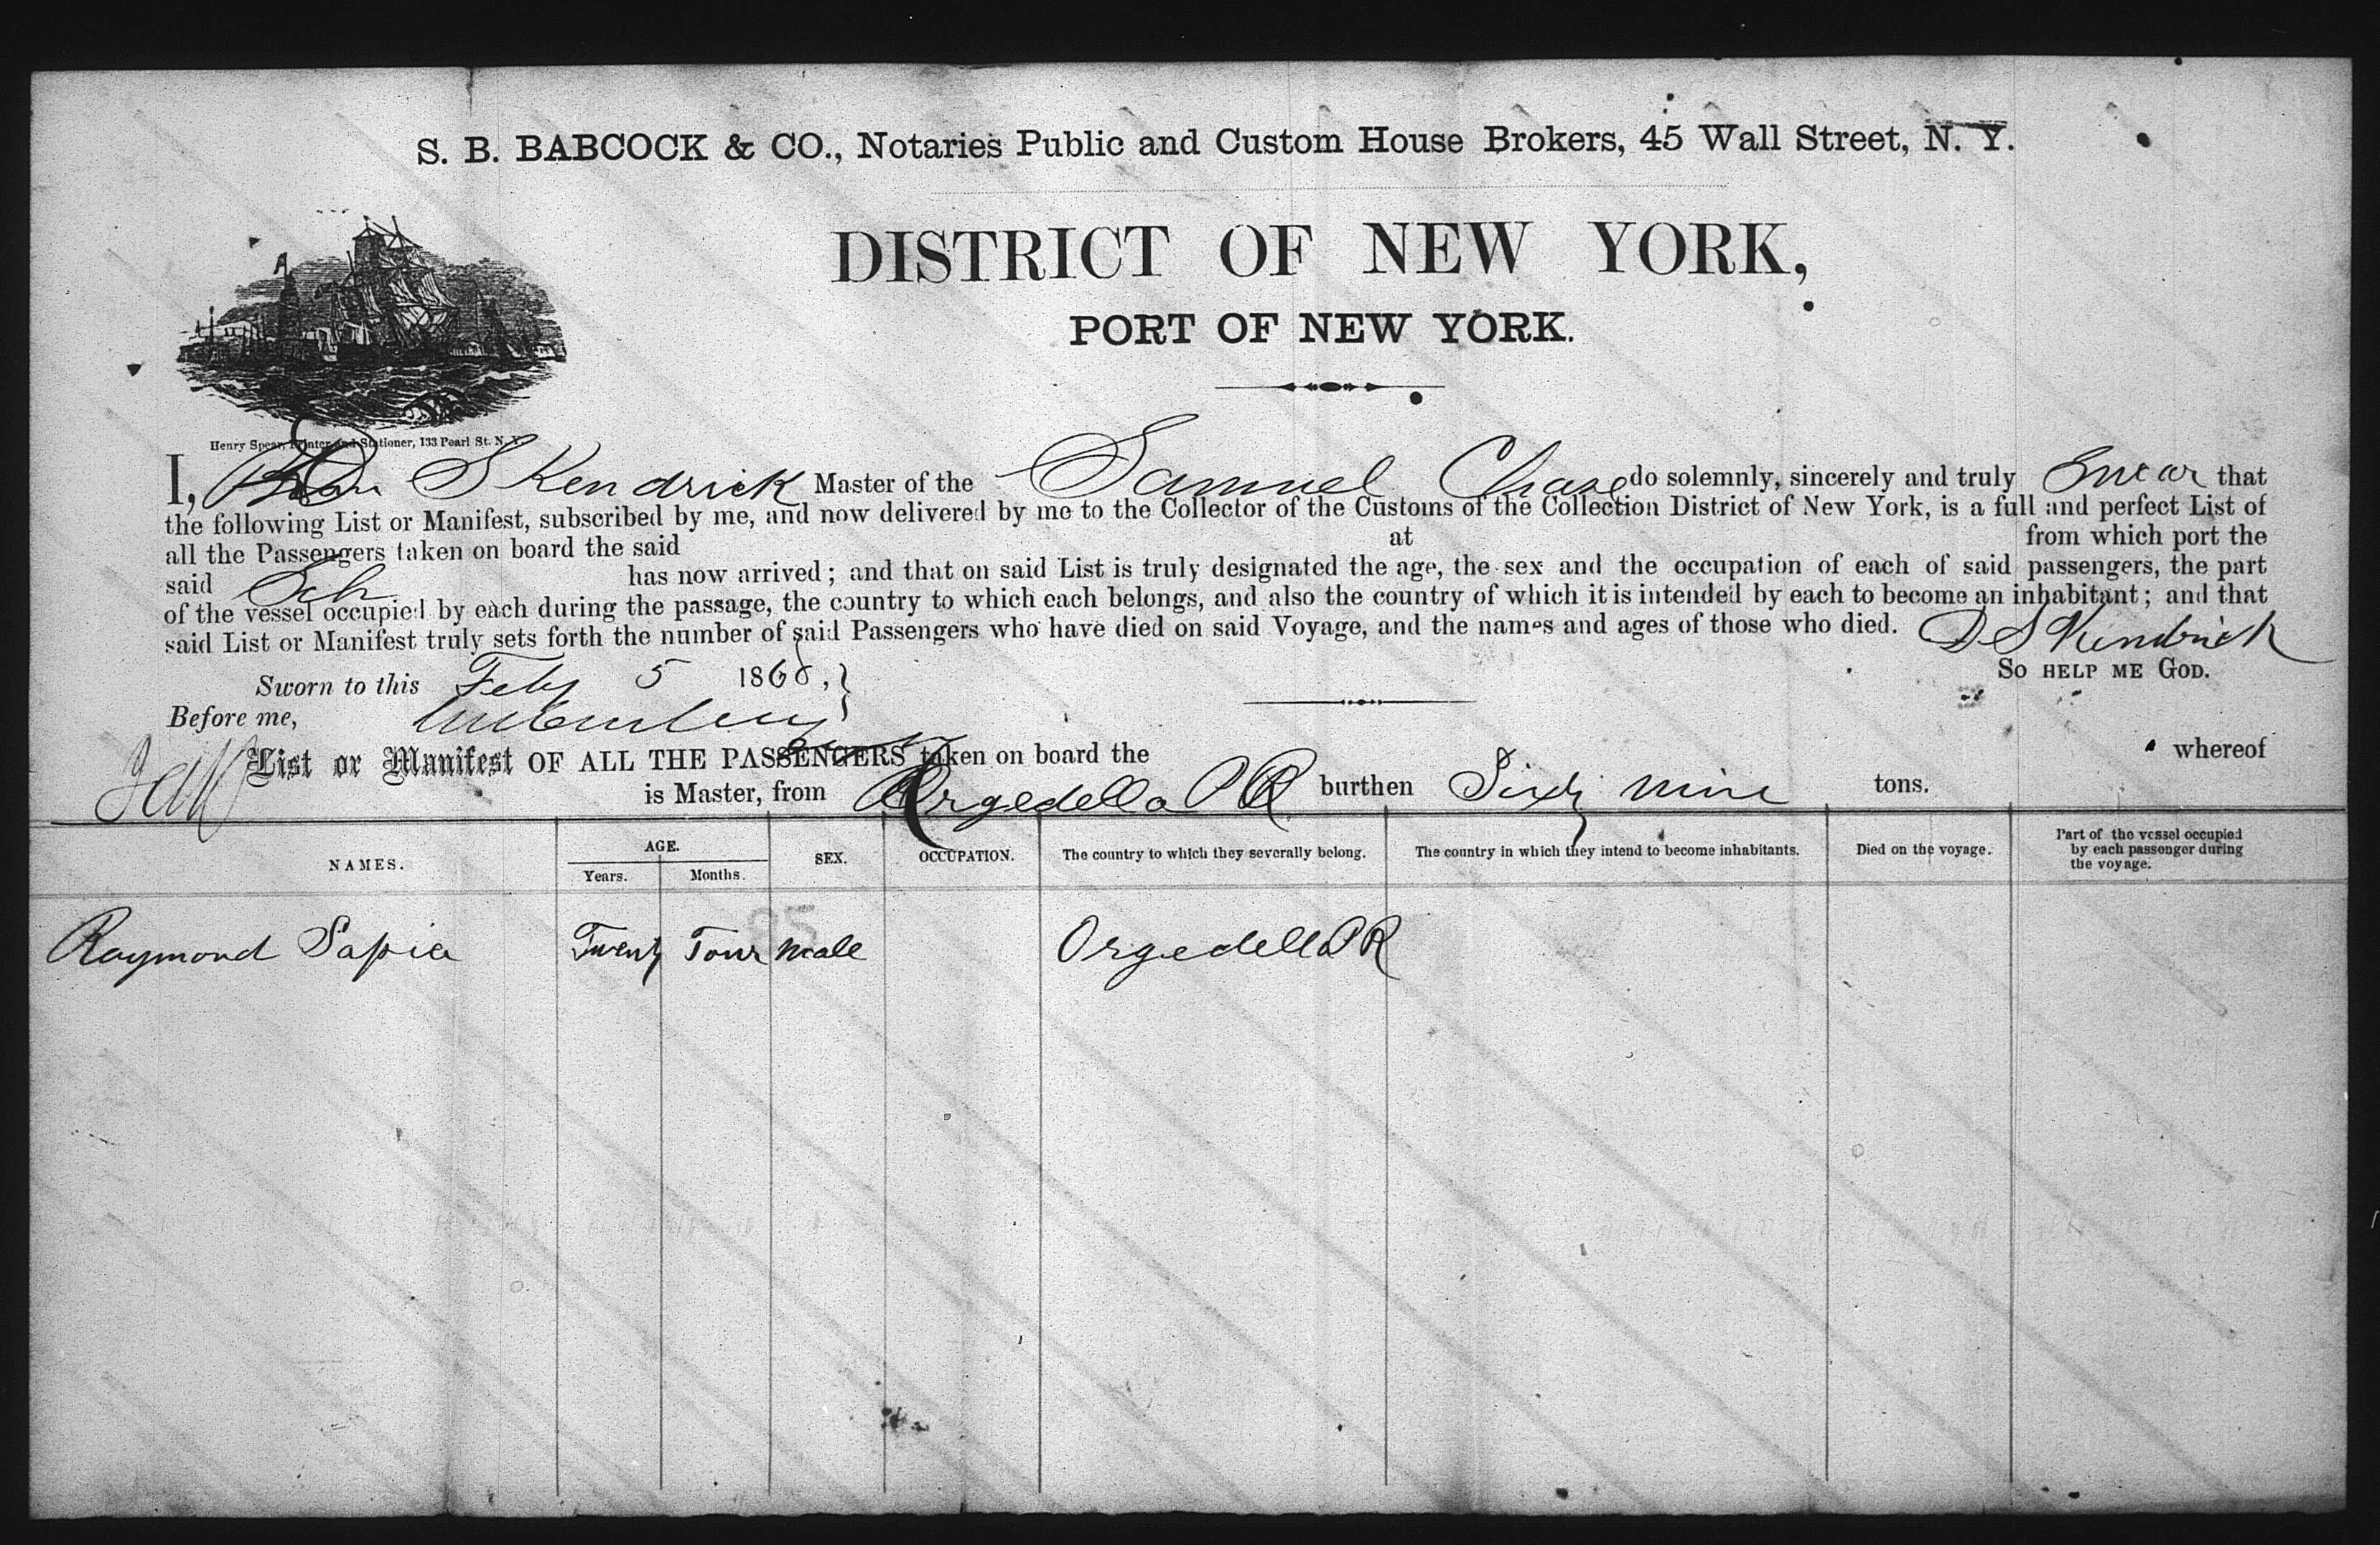 S. B. BABCOCK & CO., Notaries Public and Custom House Brokers, 45 Wall Street, N. Y.
DISTRICT OF NEW YORK,
PORT OF NEW YORK.
Henry Spear, Printer and Stationer, 133 Pearl St. N. Y.
I, S Kendrick Master of the Samuel Chase do solemnly, sincerely and truly Swear that
the following List or Manifest, subscribed by me, and now delivered by me to the Collector of the Customs of the Collection District of New York, is a full and perfect List of
all the Passengers taken on board the said at from which port the
said Sch has now arrived; and that on said List is truly designated the age, the sex and the occupation of each of said passengers, the part
of the vessel occupied by each during the passage, the country to which each belongs, and also the country of which it is intended by each to become an inhabitant; and that
said List or Manifest truly sets forth the number of said Passengers who have died on said Voyage, and the names and ages of those who died. D S Kendrick
So HELP ME GOD.
Sworn to this Feby 5 1868,
Before me,
List or Manifest OF ALL THE PASSENGERS taken on board the whereof
is Master, from Orgedella PR burthen Sixty nine tons.
NAMES. AGE. SEX. OCCUPATION. The country to which they severally belong. The country in which they intend to become inhabitants. Died on the voyage. Part of the vessel occupied by each passenger during the voyage.
Years. Months.
Raymond Sapia Twenty Four male Orgedella PR